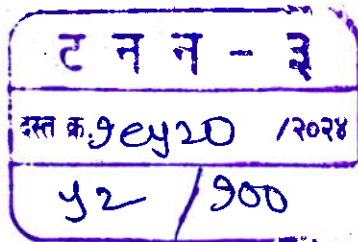 ट न न - ३
दस्त क्र. १९५२० /२०२४
५२ / १००